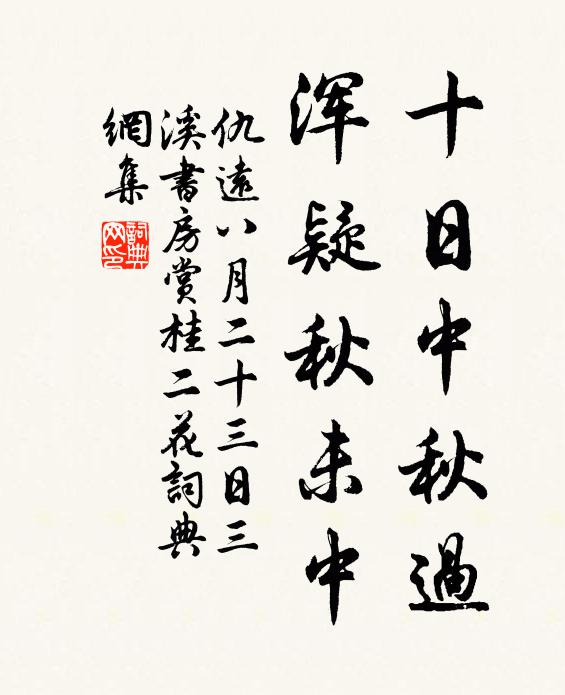 十日中秋過
浑疑秋未中
仇遠八月二十三日三
溪書房赏桂二花詞典
網集
詞典
网印